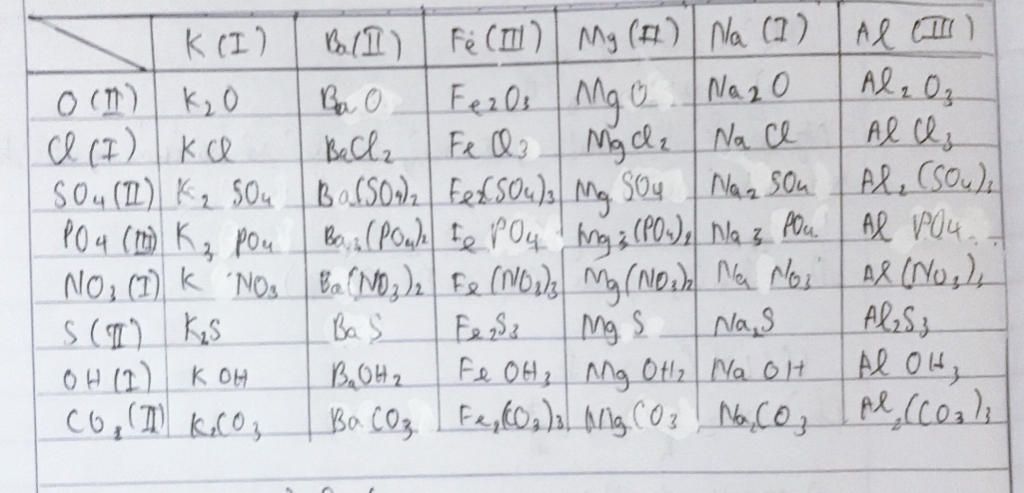 K (I) Ba (II) Fe (III) Mg (II) Na (I) Al (III)
O (II) K2O BaO Fe2O3 MgO Na2O Al2O3
Cl (I) KCl BaCl2 FeCl3 MgCl2 NaCl AlCl3
SO4 (II) K2SO4 Ba(SO4)2 Fe2(SO4)3 MgSO4 Na2SO4 Al2(SO4)3
PO4 (III) K3PO4 Ba3(PO4)2 FePO4 Mg3(PO4)2 Na3PO4 AlPO4
NO3 (I) KNO3 Ba(NO3)2 Fe(NO3)3 Mg(NO3)2 NaNO3 Al(NO3)3
S (II) K2S BaS Fe2S3 MgS Na2S Al2S3
OH (I) KOH BaOH2 FeOH3 MgOH2 NaOH AlOH3
CO3 (II) K2CO3 BaCO3 Fe2(CO3)3 MgCO3 Na2CO3 Al2(CO3)3